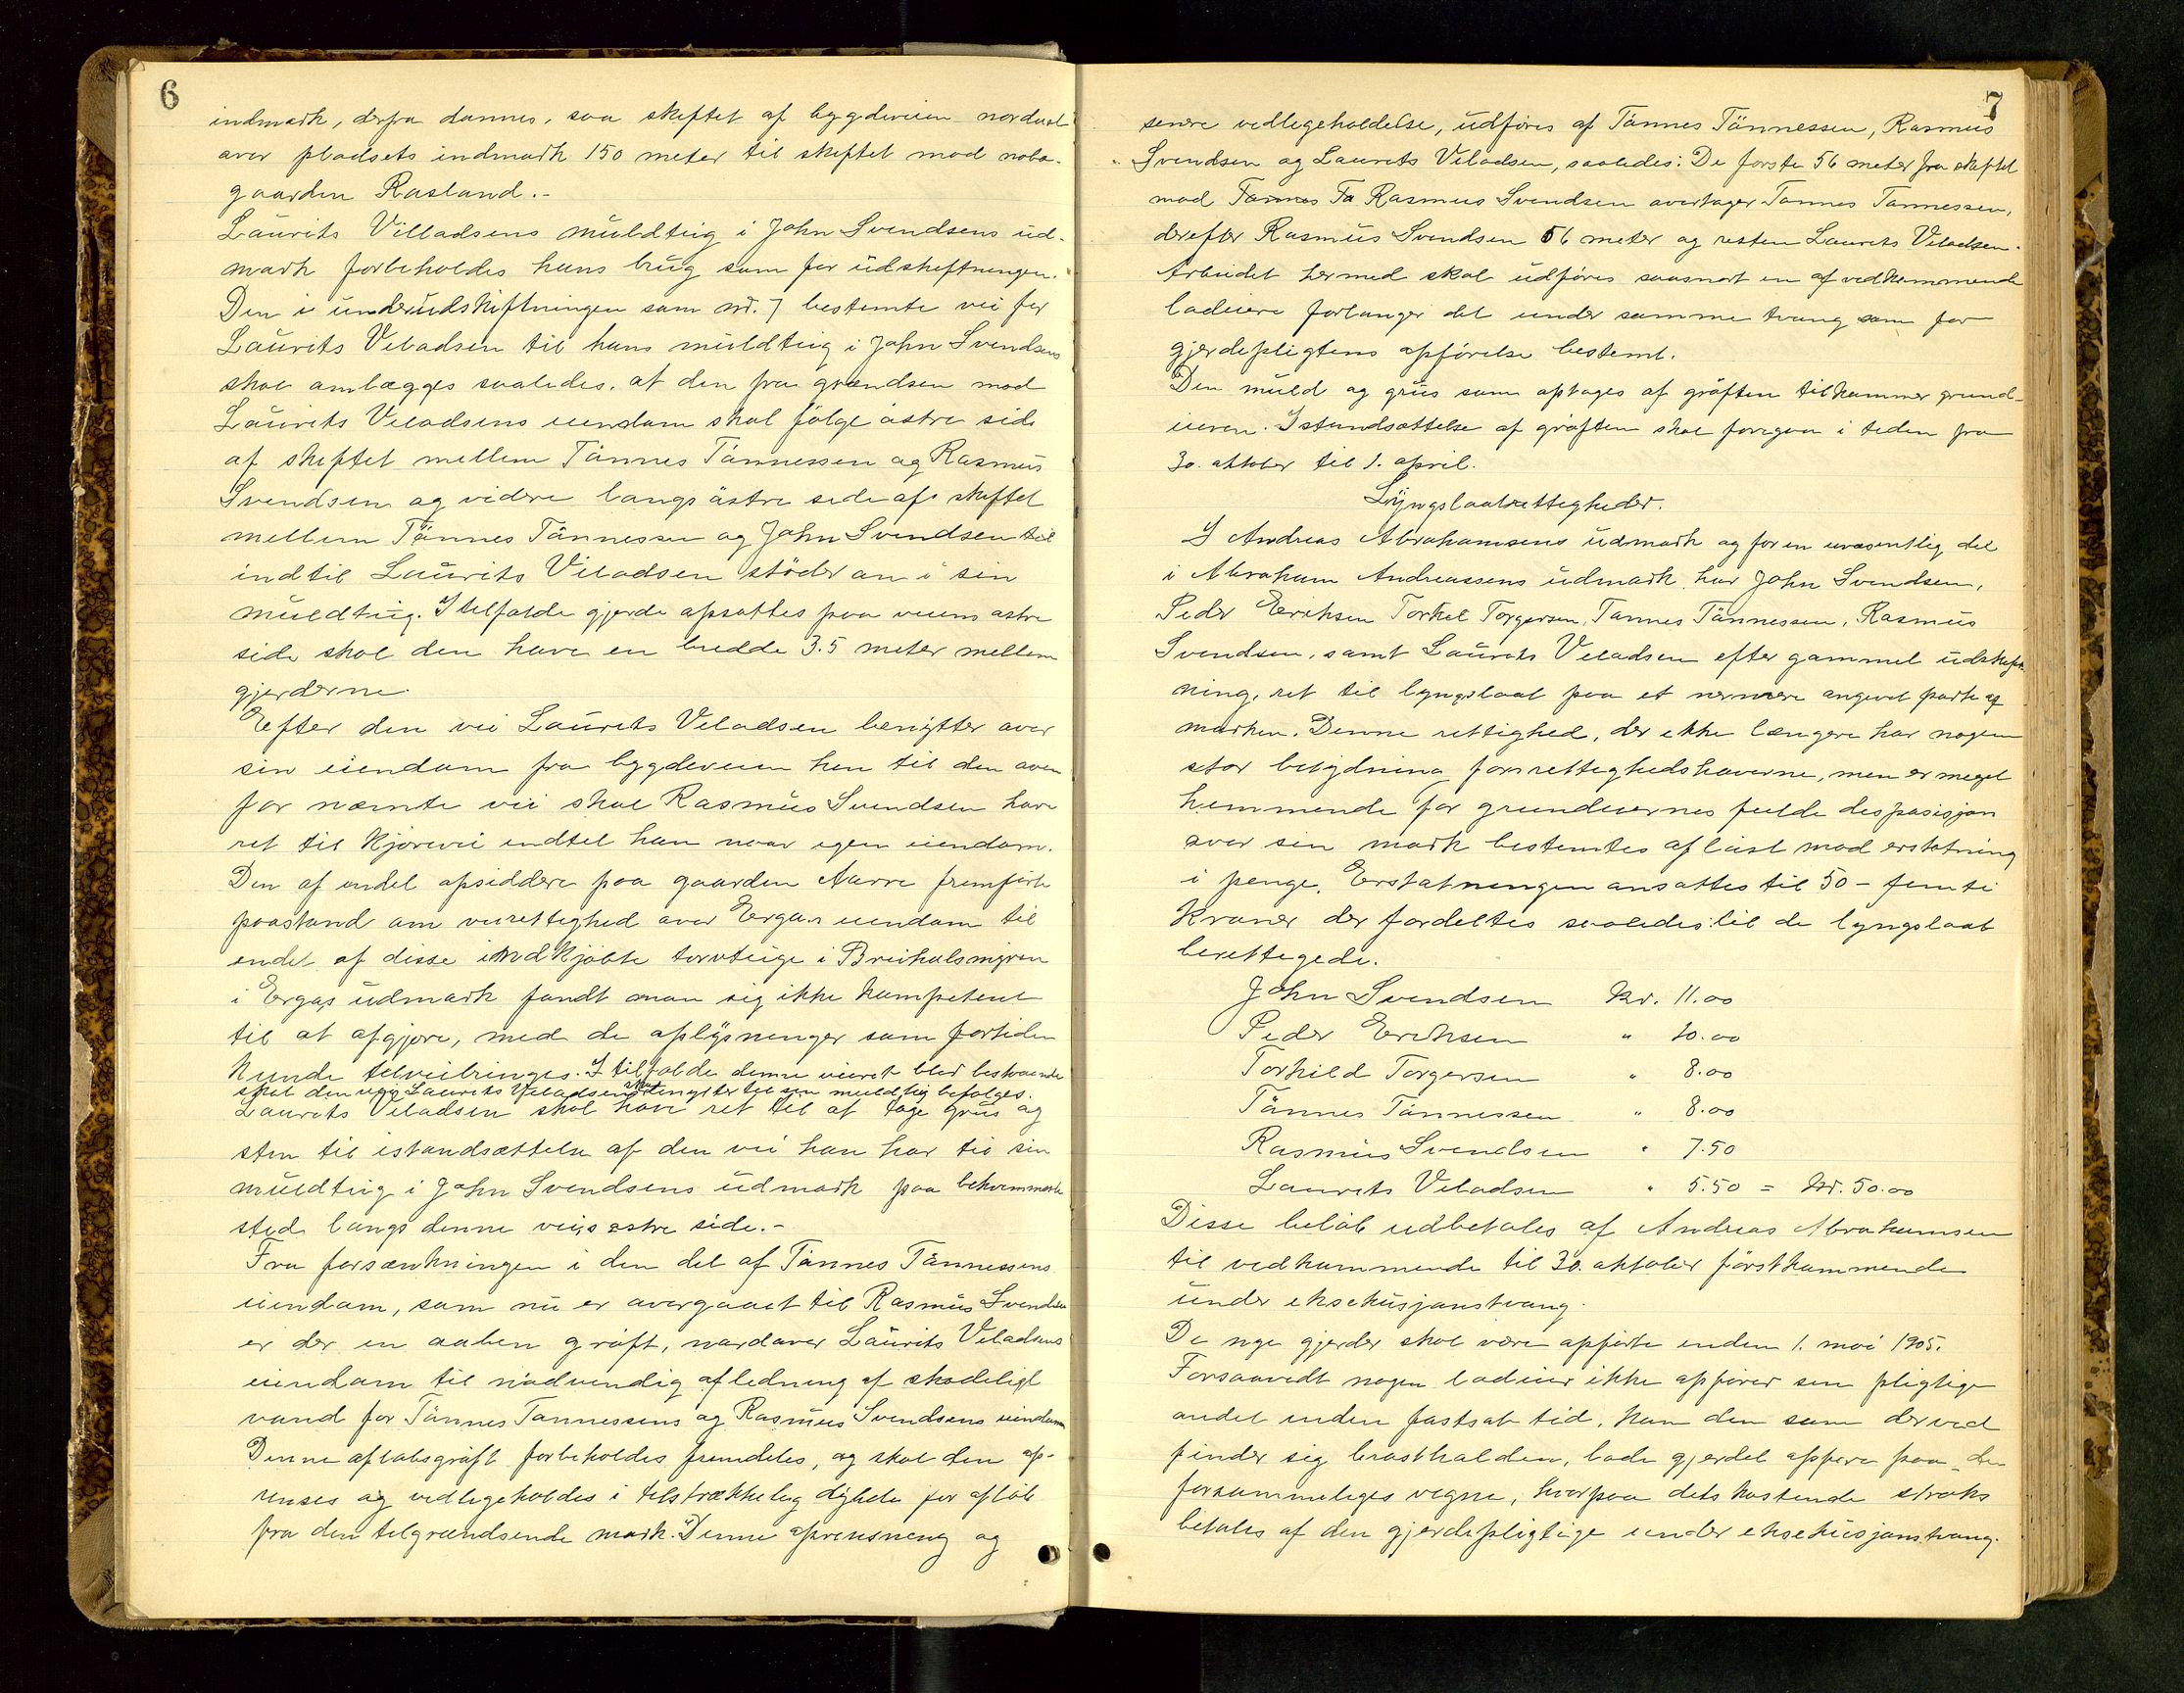 6
indmark, derfra dannes, saa skiftet af bygdeveien nordust
over pladsets indmark 150 meter til skiftet mod nabo-
gaarden Rasland.-
Laurits Villadsens muldteig i John Svendsens ud-
mark forbeholdes hans brug som før udskiftningen.
Den i underudskiftningen som nr. 7 bestemte vei for
Laurits Veladsen til hans muldteig i John Svendsens
skal omlægges saaledes, at den fra grændsen mod
Laurits Veladsens eiendom skal følge østre side
af skiftet mellem Tønnes Tønnessen og Rasmus
Svendsen og videre langs østre side af skiftet
mellem Tønnes Tønnessen og John Svendsen til
indtil Laurits Veladsen støder an i sin
muldteig. I tilfælde gjerde opsættes paa veiens østre
side skal den have en bredde 3.5 meter mellem
gjerderne.
Efter den vei Laurits Veladsen benytter over
sin eiendom fra bygdeveien hen til den oven
for nævnte vei skal Rasmus Svendsen have
ret til kjørevei indtil han naar egen eiendom.
Den af endel opsiddere paa gaarden Aarre fremførte
paastand om veirettighed over Ergas eiendom til
endel af disse indkjøbte torvteige i Breiholsmyren
i Ergas udmark fandt man sig ikke kompetent
til at afgjøre, med de oplysninger som fortiden
kunde tilveiebringes. I tilfælde denne veiret blir bestaaende
skal den vei Laurits Veladsen benytter til sin muldteig befølges.
Laurits Veladsen skal have ret til at tage grus og
sten til istandsættelse af den vei han har til sin
muldteig i John Svendsens udmark paa bekvemmeste
sted langs denne veis østre side.-
Fra forsænkningen i den del af Tønnes Tønnessens
eiendom, som nu er overgaaet til Rasmus Svendsen
er der en aaben grøft, nordover Laurits Veladsens
eiendom til nødvendig afledning af skadeligt
vand for Tønnes Tønnessens og Rasmus Svendsens eiendom
Denne afløbsgrøft forbeholdes fremdeles, og skal den op-
renses og vedligeholdes i tilstrækkelig dybde for afløb
fra den tilgrændsende mark. Denne oprensning og
7
senere vedligeholdelse, udføres af Tønnes Tønnessen, Rasmus
Svendsen og Laurits Veladsen, saaledes: De første 56 meter fra skiftet
mod Tønnes To Rasmus Svendsen overtager Tønnes Tønnessen,
derefter Rasmus Svendsen 56 meter og resten Laurits Veladsen.
Arbeidet hermed skal udføres saasnart en af vedkommende
lodeiere forlanger det under samme tvang som for
gjerdepligtens opførelse bestemt.
Den muld og grus som optages af grøften tilkommer grund-
eieren. Istandsættelse af grøften skal foregaa i tiden fra
30. oktober til 1. april.
Lyngslaatrettigheder.
I Andreas Abrahamsens udmark og for en uvæsentlig del
i Abraham Andreassens udmark har John Svendsen,
Peder Eriksen Torkel Torgersen, Tønnes Tønnessen, Rasmus
Svendsen, samt Laurits Veladsen efter gammel udskift-
ning, ret til lyngslaat paa et nærmere angivet parti af
marken. Denne rettighed, der ikke længere har nogen
stor betydning for rettighedshaverne, men er meget
hemmende for grundeiernes fulde disposisjon
over sin mark bestemtes afløst mod erstatning
i penge. Erstatningen ansattes til 50 - femti
kroner der fordeltes saaledes til de lyngslaat
berettigede.
John Svendsen Kr. 11.00
Peder Eriksen " 10.00
Torkild Torgersen " 8.00
Tønnes Tønnessen " 8.00
Rasmus Svendsen " 7.50
Laurits Veladsen " 5.50 = Kr. 50.00
Disse beløb udbetales af Andreas Abrahamsen
til vedkommende til 30. oktober førstkommende
under eksekusjonstvang.
De nye gjerder skal være opførte inden 1. mai 1905.
Forsaavidt nogen lodeier ikke opfører sin pligtige
andel inden fastsat tid, kan den som derved
finder sig brøstholden, lade gjerdet opføre paa den
forsømmeliges vegne, hvorpaa dets kostende straks
betales af den gjerdepligtige under eksekusjonstvang.